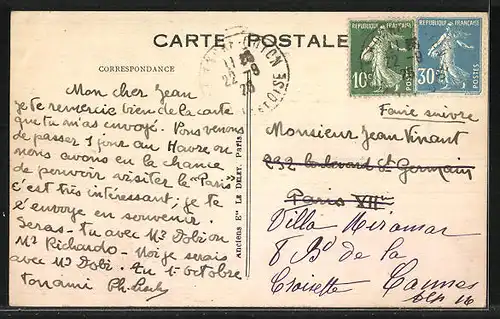 CARTE POSTALE
CORRESPONDANCE
REPUBLIQUE FRANÇAISE
10c
POSTES
REPUBLIQUE FRANÇAISE
30c
POSTES
11 25
22 - 9
26
OISE
Mon cher Jean
je te remercie bien de la carte
que tu m'as envoyé. Nous venons
de passer 1 jour au Havre ou
nous avons eu la chance
de pouvoir visiter le "Paris"
c'est très intéressant; je te
l'envoye en souvenir.
Seras-tu avec Mr Dobi ou
Mr Richard. Moi je serais
avec Mr Dobi. Au 1er octobre
ton ami Ph.
Anciens Ets La Deley, Paris
Faire suivre
Monsieur Jean Vinant
232 boulevard St Germain
Paris VII
Villa Miramar
Bd de la
Croisette Cannes